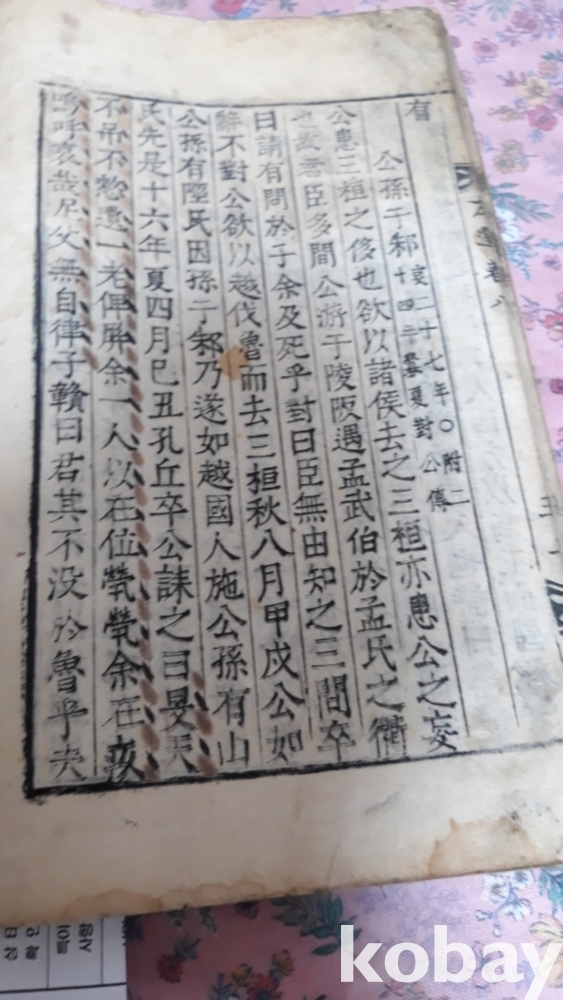 有
公孫于邾 哀二十七年〇附二
十四年 夏對公傳
公患三桓之侈也欲以諸侯去之三桓亦患公之妄
也故君臣多間公游于陵阪遇孟武伯於孟氏之衢
曰請有問於子余及死乎對曰臣無由知之三問卒
辭不對公欲以越伐魯而去三桓秋八月甲戌公如
公孫有陘氏因孫于邾乃遂如越國人施公孫有山
氏先是十六年夏四月巳丑孔丘卒公誄之曰旻天
不吊不憖遺一老俾屛余一人以在位煢煢余在疚
嗚呼哀哉尼父無自律子贛曰君其不没於魯乎夫
卷八
kobay
특이
사항
상태
확인